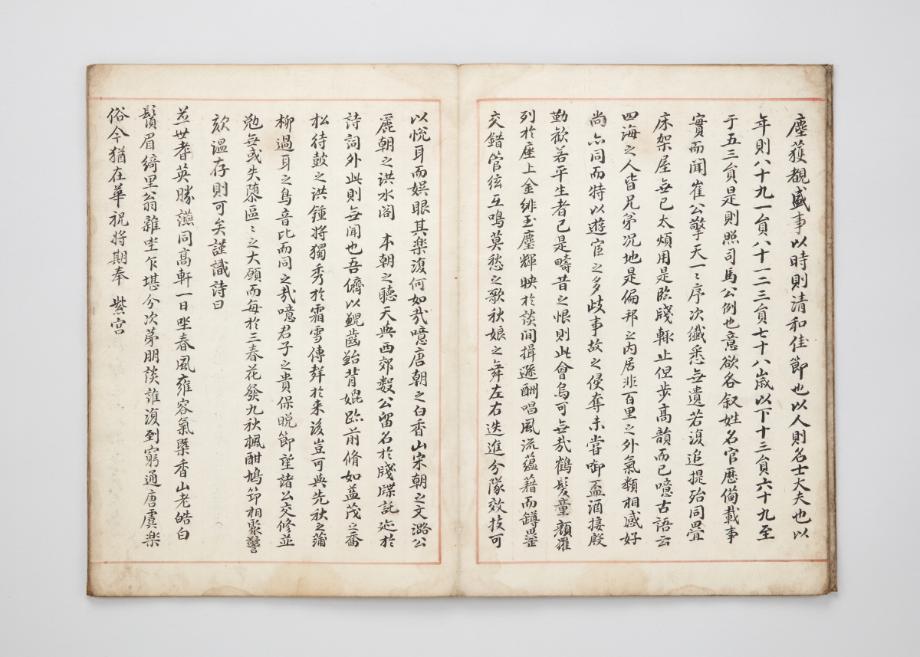 塵獲覩盛事以時則清和佳節也以人則名士大夫也以
年則八十九一員八十一二三員七十八歲以下十三員六十九至
于五三員是則照司馬公例也意欲各叙姓名官歷備載事
實而聞崔公擎天一一序次纖悉無遺若復追提殆同疊
床架屋無已太煩用是臨牋輒止但步高韻而已噫古語云
四海之人皆兄弟況地是偏邦之內居非百里之外氣類相感好
尚亦同而特以遊宦之多歧事故之侵奪未嘗御盃酒接殷
勤歡若平生者已是疇昔之恨則此會烏可無哉鶴髮童顏羅
列於座上金緋玉麈輝映於談間揖遜酬唱風流蘊藉而罇罍
交錯管絃互鳴莫愁之歌秋娘之舞左右迭進分隊效技可
以悅耳而娛眼其樂復何如哉噫唐朝之白香山宋朝之文潞公
麗朝之洪水閣 本朝之聽天與西郊數公留名於牋牒託迹於
詩詞外此則無聞也吾儕以鯢齒鮐背媲跡前脩如益茂之喬
松待鼓之洪鍾將獨秀於霜雪傳聲於来後豈可與先秋之蒲
柳過耳之鳥音比而同之哉噫君子之貴保晩節望諸公交修並
勉無或失墜區々之大願而每於三春花發九秋楓酣鳩笻相聚謦
欬溫存則可矣謹識詩曰
並世耆英勝讌同高軒一日坐春風雍容氣槩香山老皓白
鬚眉綺里翁離坐乍堪分次第朋談誰復到窮通唐虞樂
俗今猶在華祝將期奉 紫宮